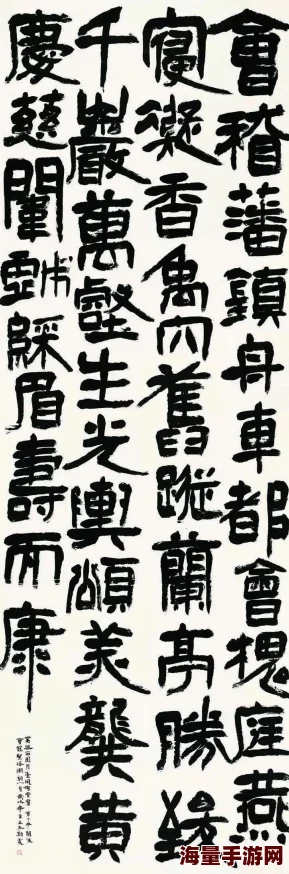 會稽藩鎮舟車都會槐庭燕
寢凝香禹穴舊蹤蘭亭勝
千巖萬壑生光輿頌美龔黃
慶慈闈戲綵眉壽而康
海量手游网